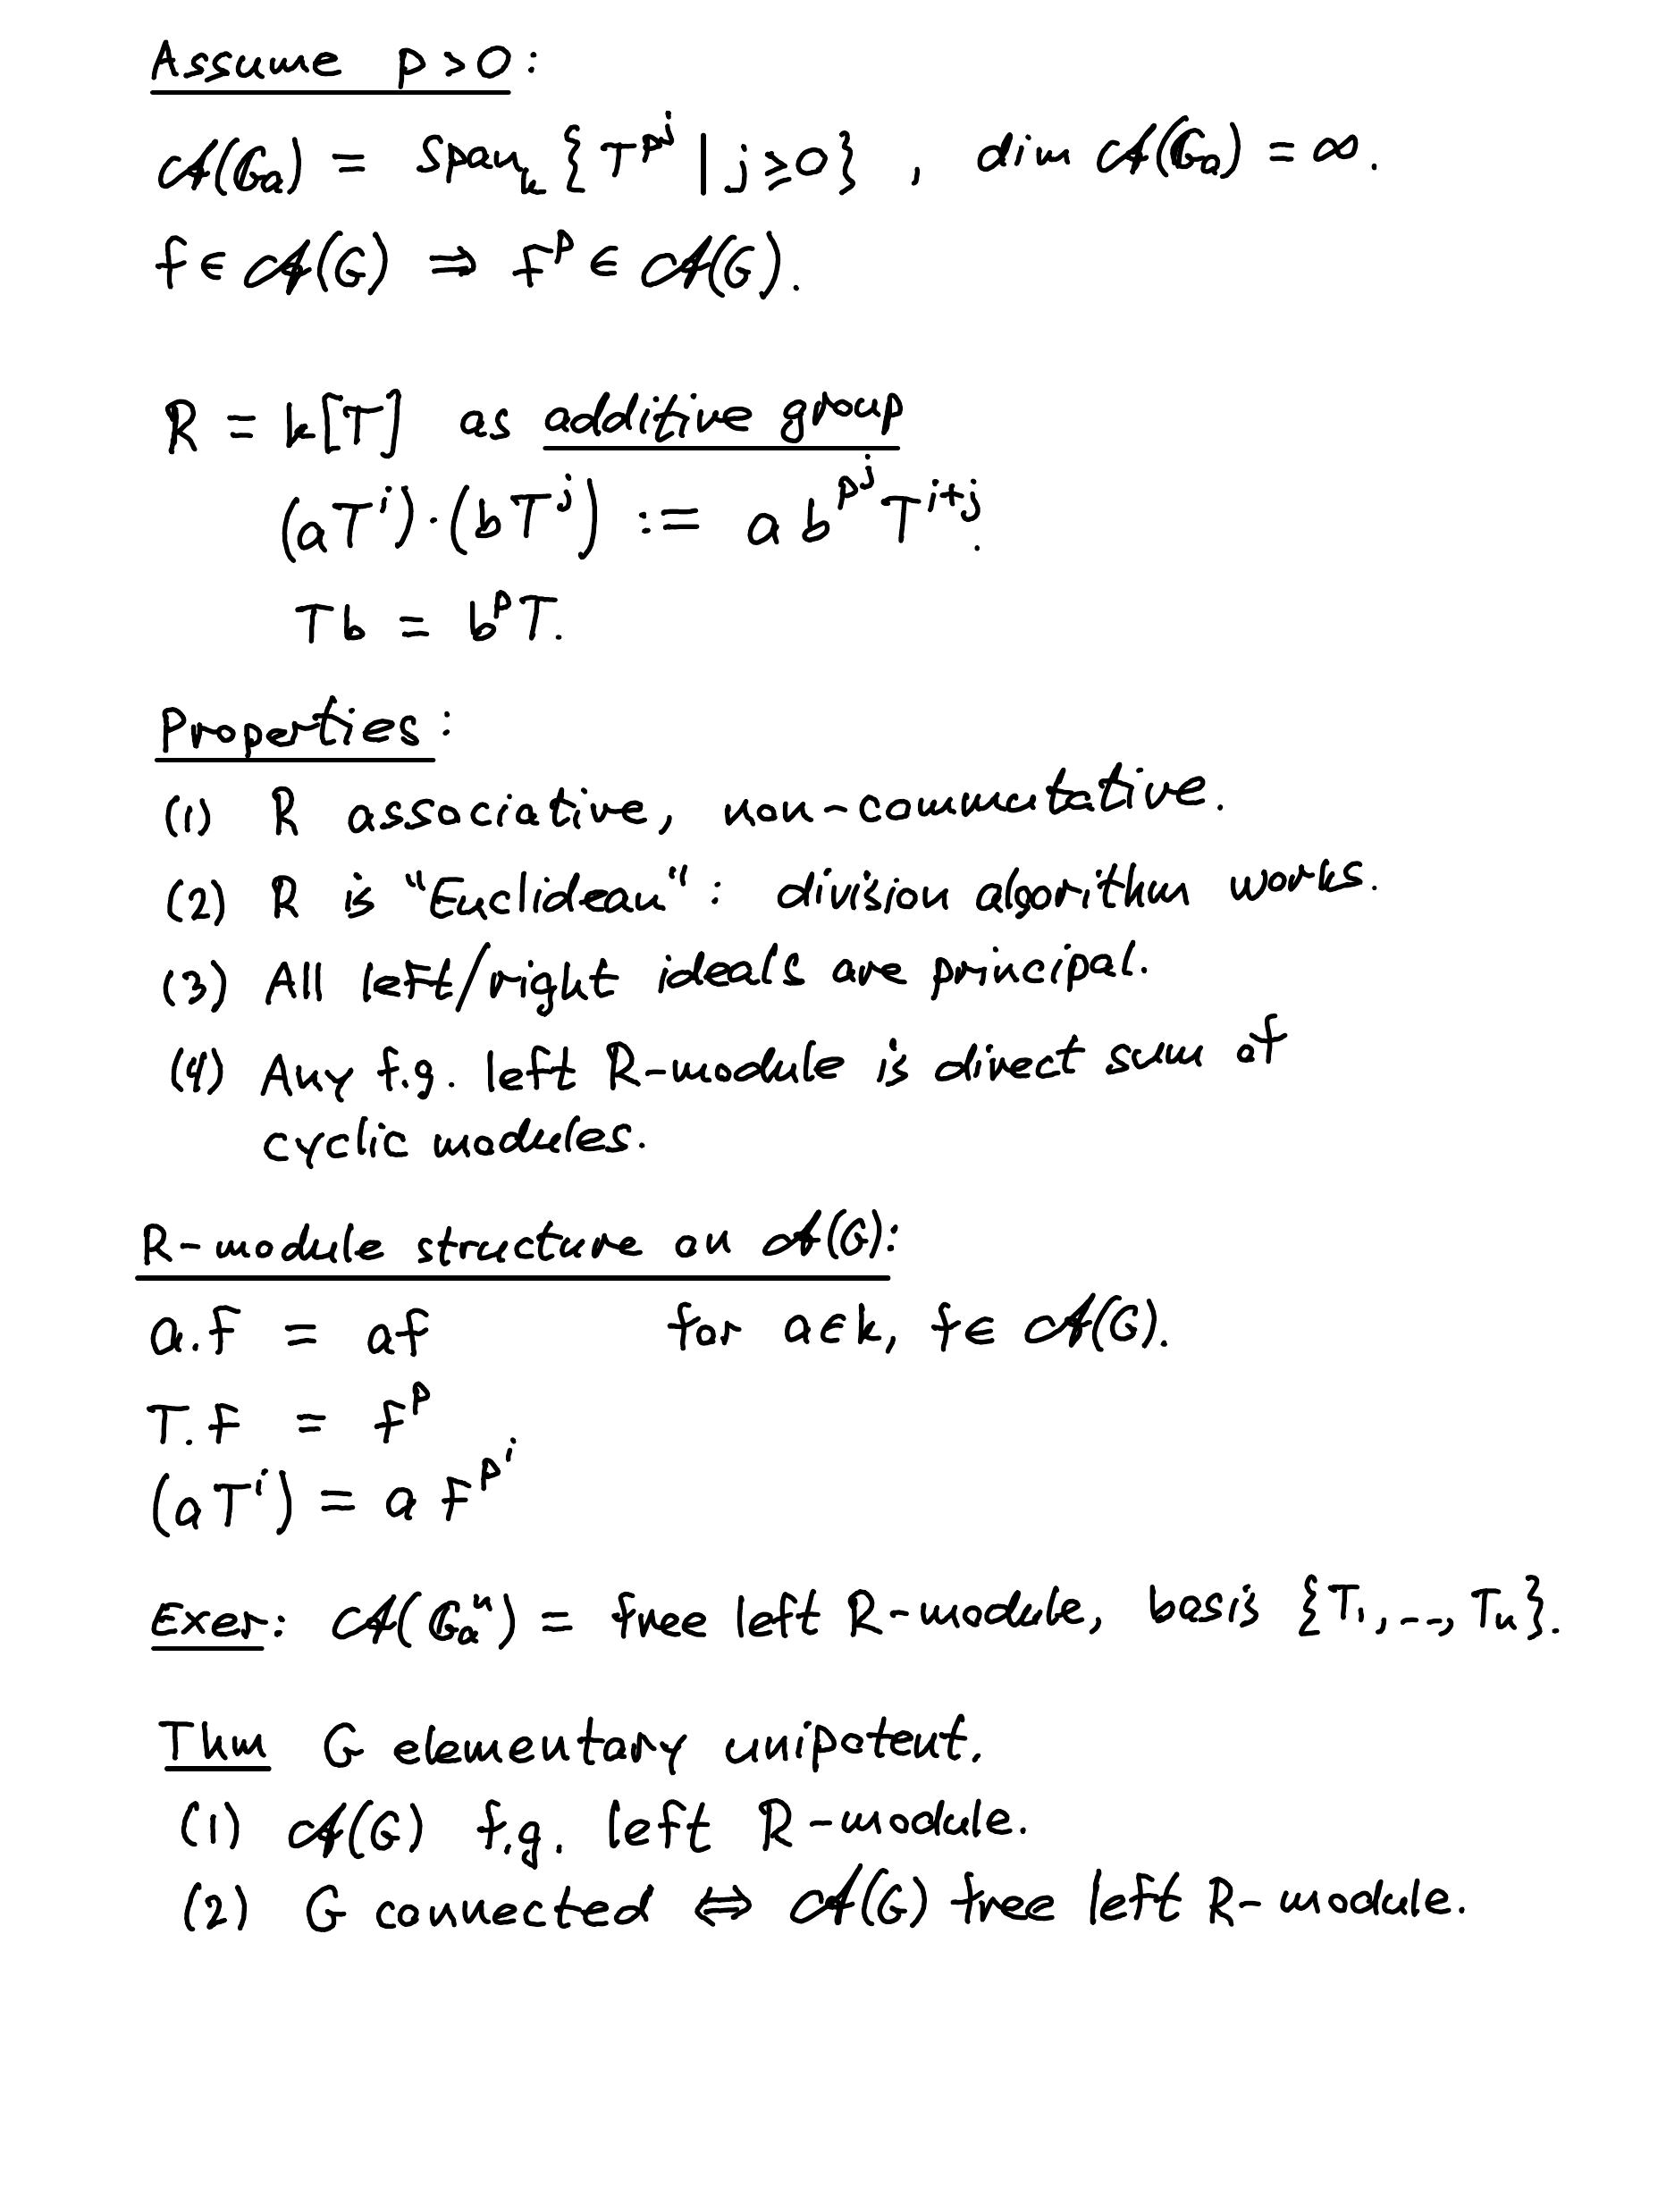 Assume p>0:
𝒜(𝔾ₐ) = span_k { T^{p^j} | j ⩾ 0 } , dim 𝒜(𝔾ₐ) = ∞.
f ∈ 𝒜(G) ⇒ f^p ∈ 𝒜(G).
R = k[T] as additive group
(aT^i)·(bT^j) := a b^{p^j} T^{i+j}.
Tb = b^p T.
Properties:
(1) R associative, non-commutative.
(2) R is "Euclidean": division algorithm works.
(3) All left/right ideals are principal.
(4) Any f.g. left R-module is direct sum of
cyclic modules.
R-module structure on 𝒜(G):
a.f = af for a∈k, f∈ 𝒜(G).
T.f = f^p
(aT^i) = a f^{p^i}
Exer: 𝒜(𝔾ₐ^n) = free left R-module, basis {T₁,--,Tₙ}.
Thm G elementary unipotent.
(1) 𝒜(G) f.g. left R-module.
(2) G connected ⇔ 𝒜(G) free left R-module.